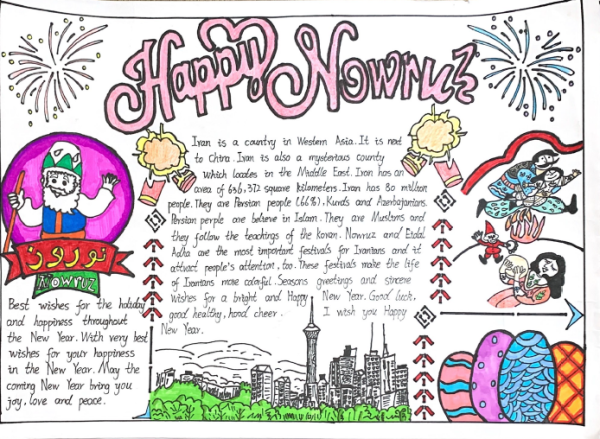 Happy Nowruz
Iran is a country in Western Asia. It is next
to China. Iran is also a mysterious county
which locales in the Middle East. Iran has an
area of 636,372 square kilometers. Iran has 80 million
people. They are Persian people (66%), Kurds and Azerbaijanis.
Persian perple are believe in Islam. They are Muslims and
they follow the teachings of the koran. Nowruz and Eidal
Adha are the most important festivals for Iranians and it
attract people's attention, too. These festivals make the life
of Iranians more colorful. Seasons greetings and sincere
wishes for a bright and Happy New Year. Good luck,
good healthy, hond cheer. I wish you Happy
New Year.
نوروز
Nowruz
Best wishes for the holiday
and happiness throughout
the New Year. With very best
wishes for your happiness
in the New Year. May the
coming New Year bring you
joy, love and peace.